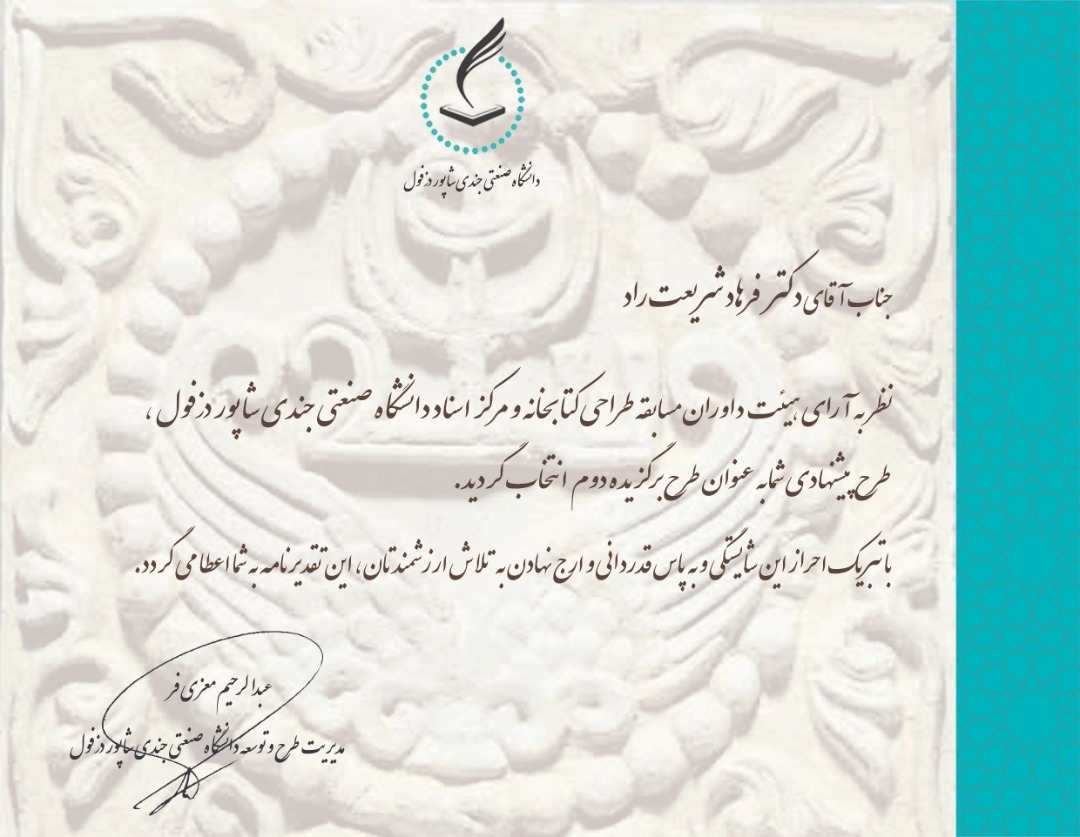 دانشگاه صنعتی جندی شاپور دزفول
جناب آقای دکتر فرهاد شریعت راد
نظر به آرای هیئت داوران مسابقه طراحی کتابخانه و مرکز اسناد دانشگاه صنعتی جندی شاپور دزفول ،
طرح پیشنهادی شما به عنوان طرح برگزیده دوم انتخاب گردید.
با تبریک احراز این شایستگی و به پاس قدردانی و ارج نهادن به تلاش ارزشمندتان، این تقدیرنامه به شما اعطا می گردد.
عبدالرحیم معزی فر
مدیریت طرح و توسعه دانشگاه صنعتی جندی شاپور دزفول